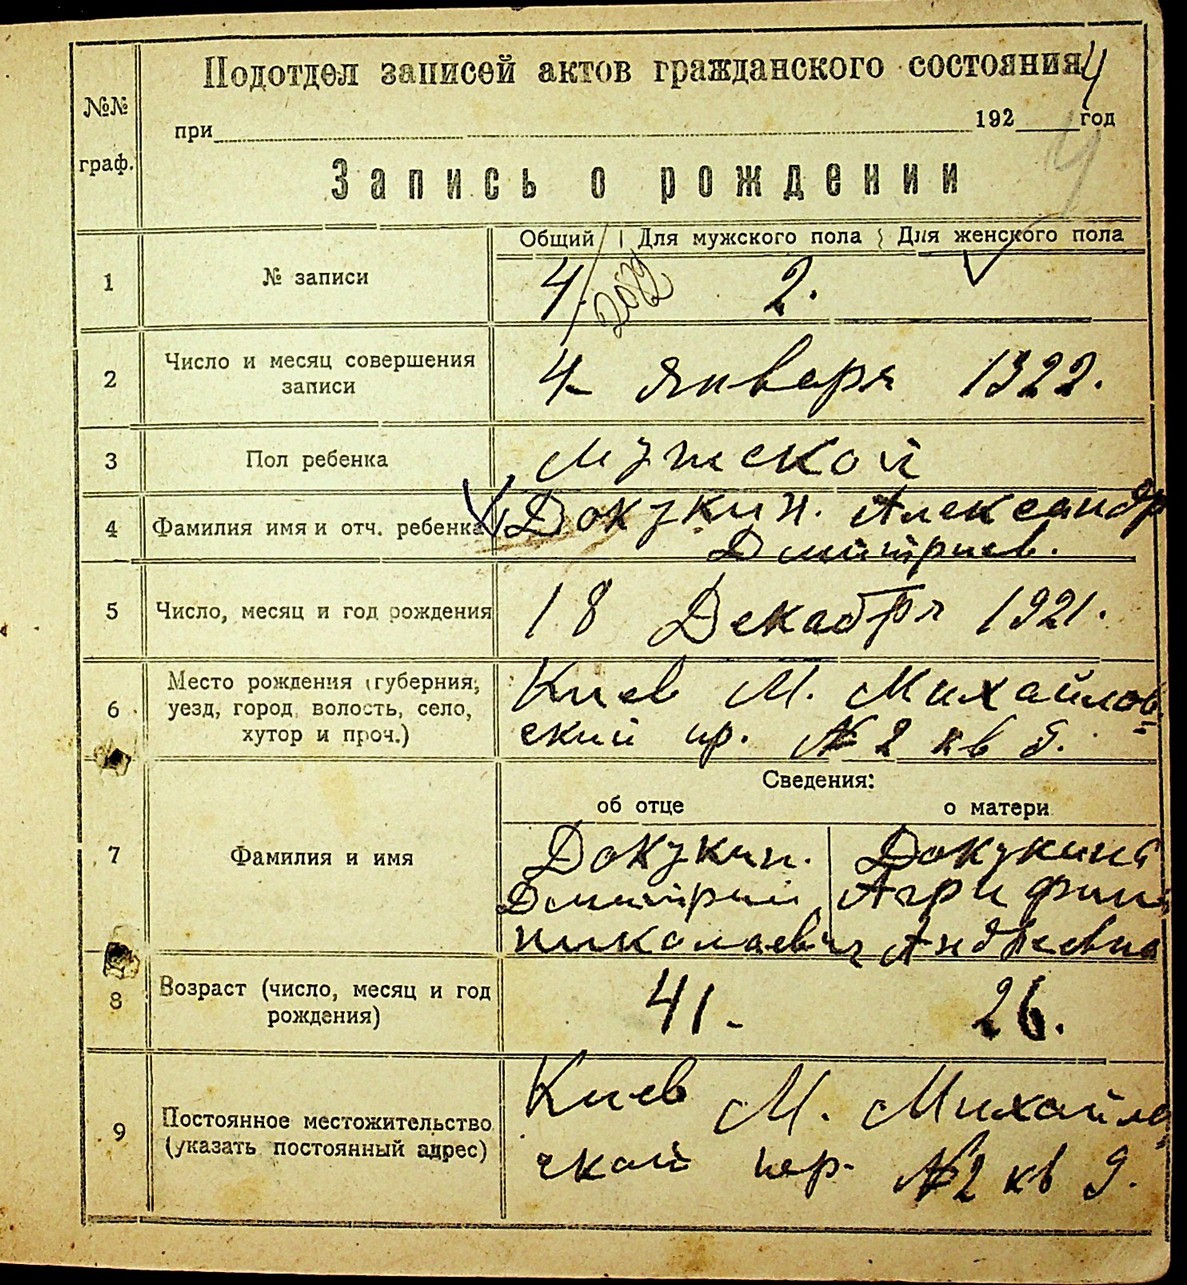 Подотдел записей актов гражданского состояния 4
№№
граф.
при 192 год
4
Запись о рождении
Общий Для мужского пола Для женского пола
1 № записи 4. 2.
2 Число и месяц совершения
записи
4 Января 1922.
3 Пол ребенка Мужской
4 Фамилия имя и отч. ребенка Докукин. Александр
Дмитриев.
5 Число, месяц и год рождения 18 Декабря 1921.
6 Место рождения (губерния,
уезд, город, волость, село,
хутор и проч.)
Киев М. Михайлов=
ский пр. № 2 кв
Сведения:
об отце о матери
7 Фамилия и имя
Докукин. Докукина
Дмитрий Агрифина
Николаевич Андреевна
8 Возраст (число, месяц и год
рождения)
41. 26.
9 Постоянное местожительство
(указать постоянный адрес)
Киев М. Михайло=
пер. №2 кв 9.